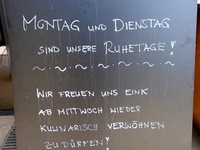 MONTAG UND DIENSTAG
SIND UNSERE RUHETAGE!
~.~.~.~.~.~.~
WIR FREUEN UNS EINK
AB MITTWOCH WIEDER
KULINARISCH VERWÖHNEN
ZU DÜRFEN!